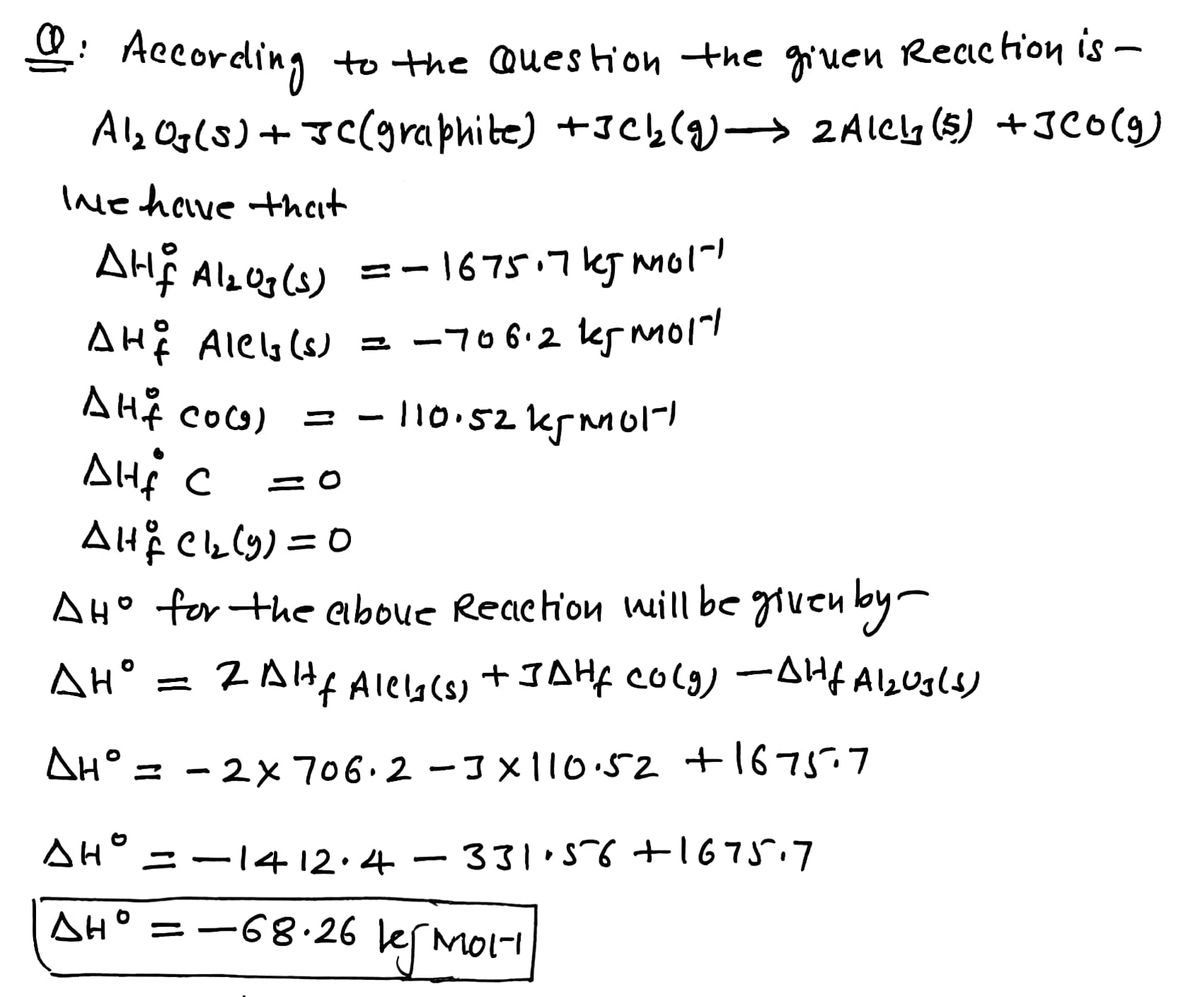 Q: According to the Question the given Reaction is -
Al₂O₃(s) + 3C(graphite) + 3Cl₂(g) → 2AlCl₃(s) + 3CO(g)
We have that
ΔH°f Al₂O₃(s) = - 1675.7 kJ mol⁻¹
ΔH°f AlCl₃(s) = -706.2 kJ mol⁻¹
ΔH°f CO(g) = - 110.52 kJ mol⁻¹
ΔH°f C = 0
ΔH°f Cl₂(g) = 0
ΔH° for the above Reaction will be given by -
ΔH° = 2ΔHf AlCl₃(s) + 3ΔHf CO(g) - ΔHf Al₂O₃(s)
ΔH° = - 2 × 706.2 - 3 × 110.52 + 1675.7
ΔH° = -1412.4 - 331.56 + 1675.7
ΔH° = -68.26 kJ mol-1